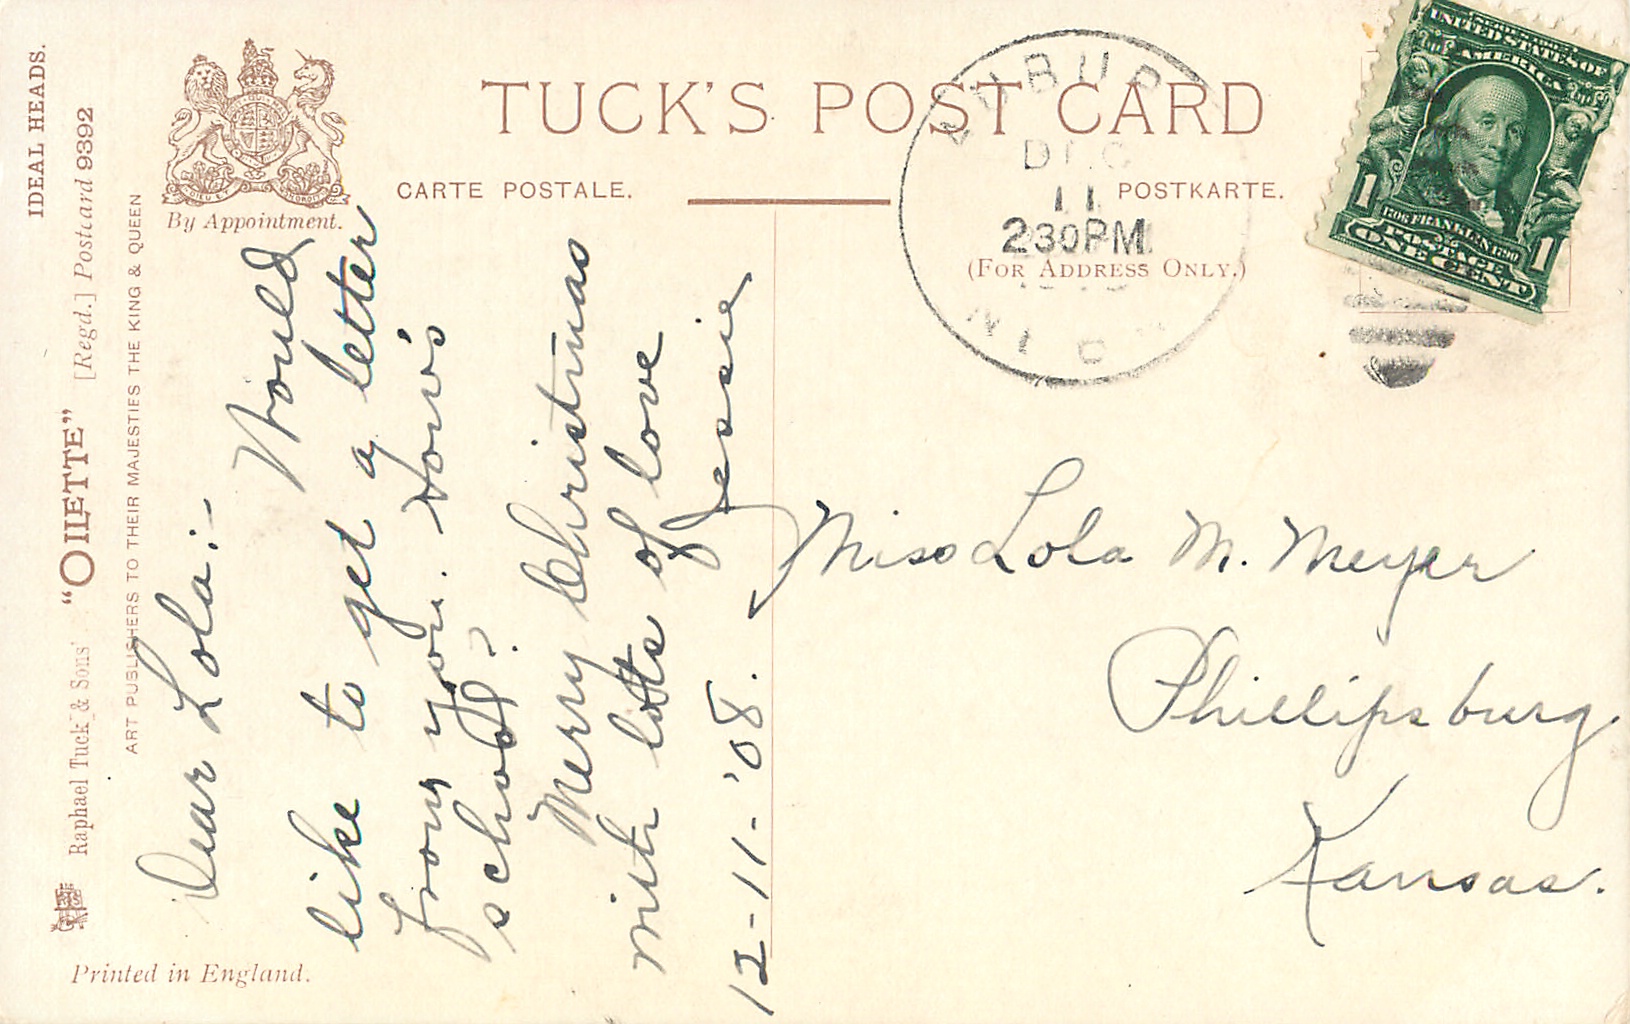 TUCK'S POST CARD
CARTE POSTALE.
POSTKARTE.
(FOR ADDRESS ONLY.)
By Appointment.
IDEAL HEADS.
"OILETTE" [Regd.] Postcard 9392
Raphael Tuck & Sons'
ART PUBLISHERS TO THEIR MAJESTIES THE KING & QUEEN
Printed in England.
DEC
11
230PM
UNITED STATES OF
AMERICA
1 1
FRANKLIN
POSTAGE
ONE CENT
Dear Lola:-
Would
like to get a letter
from you. How's
school?
Merry Christmas
with lotts of love
Jessie
12-11-'08.
Miss Lola M. Meyer
Phillipsburg
Kansas.